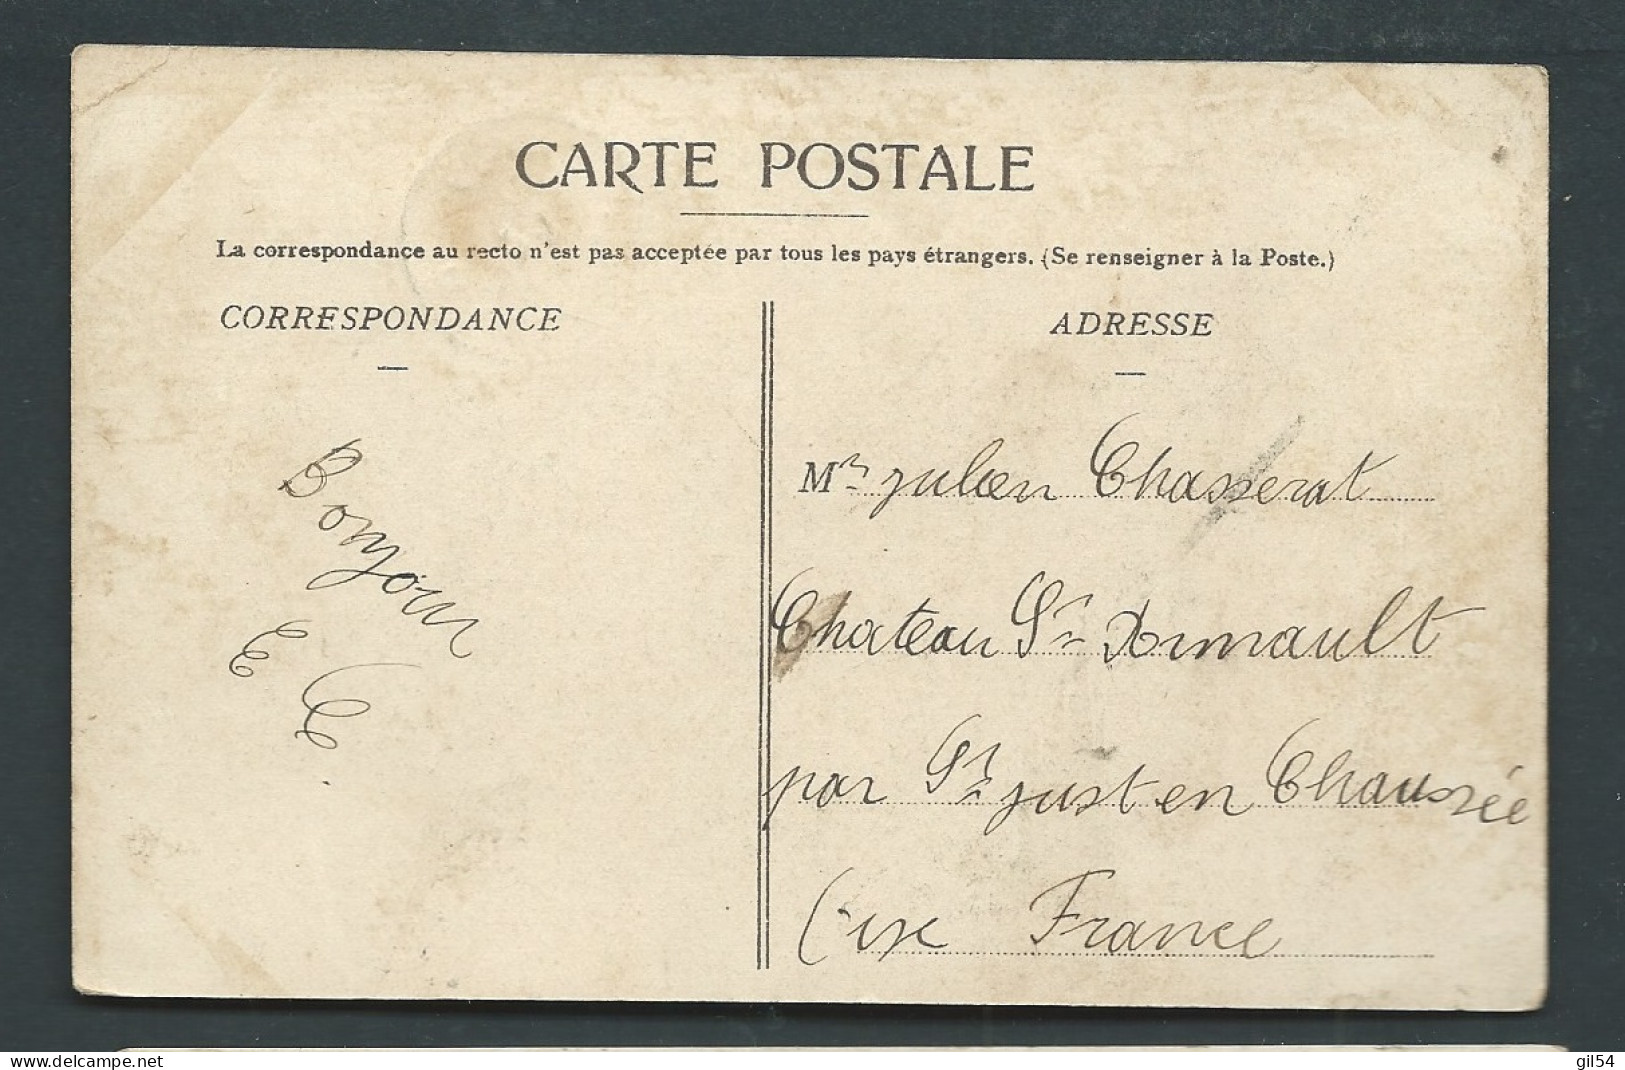 CARTE POSTALE
La correspondance au recto n'est pas acceptée par tous les pays étrangers. (Se renseigner à la Poste.)
CORRESPONDANCE
Bonjour
E C
ADRESSE
Mr Julien Chasserat
Chateau St Rimault
par St Just en Chaussée
Oise France
www.delcampe.net
gil54